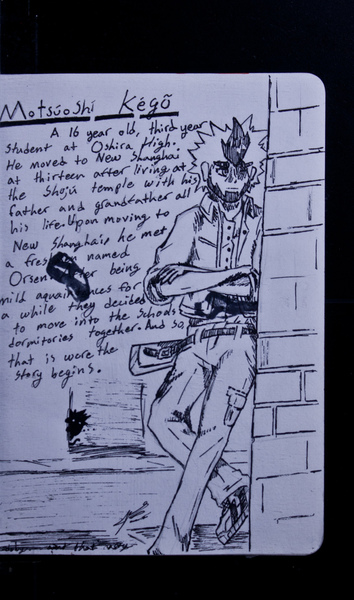 Motsúoshí Kégõ
A 16 year old, third year
student at Oshira High.
He moved to New Shanghai
at thirteen after living at
the Shojú temple with his
father and grandfather all
his life. Upon moving to
New Shanghai, he met
a named
Orsen being
mild for
a while they decided
to move into the schools
dormitories together. And so,
that is were the
story begins.